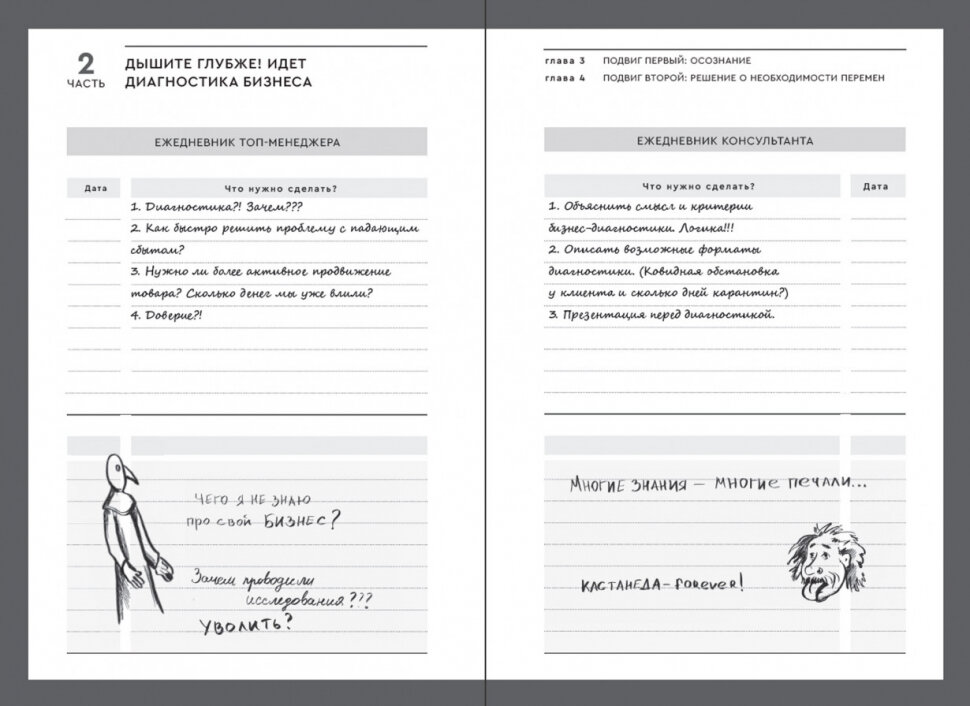 2
ЧАСТЬ
ДЫШИТЕ ГЛУБЖЕ! ИДЕТ
ДИАГНОСТИКА БИЗНЕСА
ЕЖЕДНЕВНИК ТОП-МЕНЕДЖЕРА
Дата
Что нужно сделать?
1. Диагностика?! Зачем???
2. Как быстро решить проблему с падающим
сбытом?
3. Нужно ли более активное продвижение
товара? Сколько денег мы уже влили?
4. Доверие?!
ЧЕГО Я НЕ ЗНАЮ
про свой БИЗНЕС?
Зачем проводили
исследования???
УВОЛИТЬ?
глава 3 ПОДВИГ ПЕРВЫЙ: ОСОЗНАНИЕ
глава 4 ПОДВИГ ВТОРОЙ: РЕШЕНИЕ О НЕОБХОДИМОСТИ ПЕРЕМЕН
ЕЖЕДНЕВНИК КОНСУЛЬТАНТА
Что нужно сделать?
Дата
1. Объяснить смысл и критерии
бизнес-диагностики. Логика!!!
2. Описать возможные форматы
диагностики. (Ковидная обстановка
у клиента и сколько дней карантин?)
3. Презентация перед диагностикой.
МНОГИЕ ЗНАНИЯ — МНОГИЕ ПЕЧАЛИ...
КАСТАНЕДА - forever!